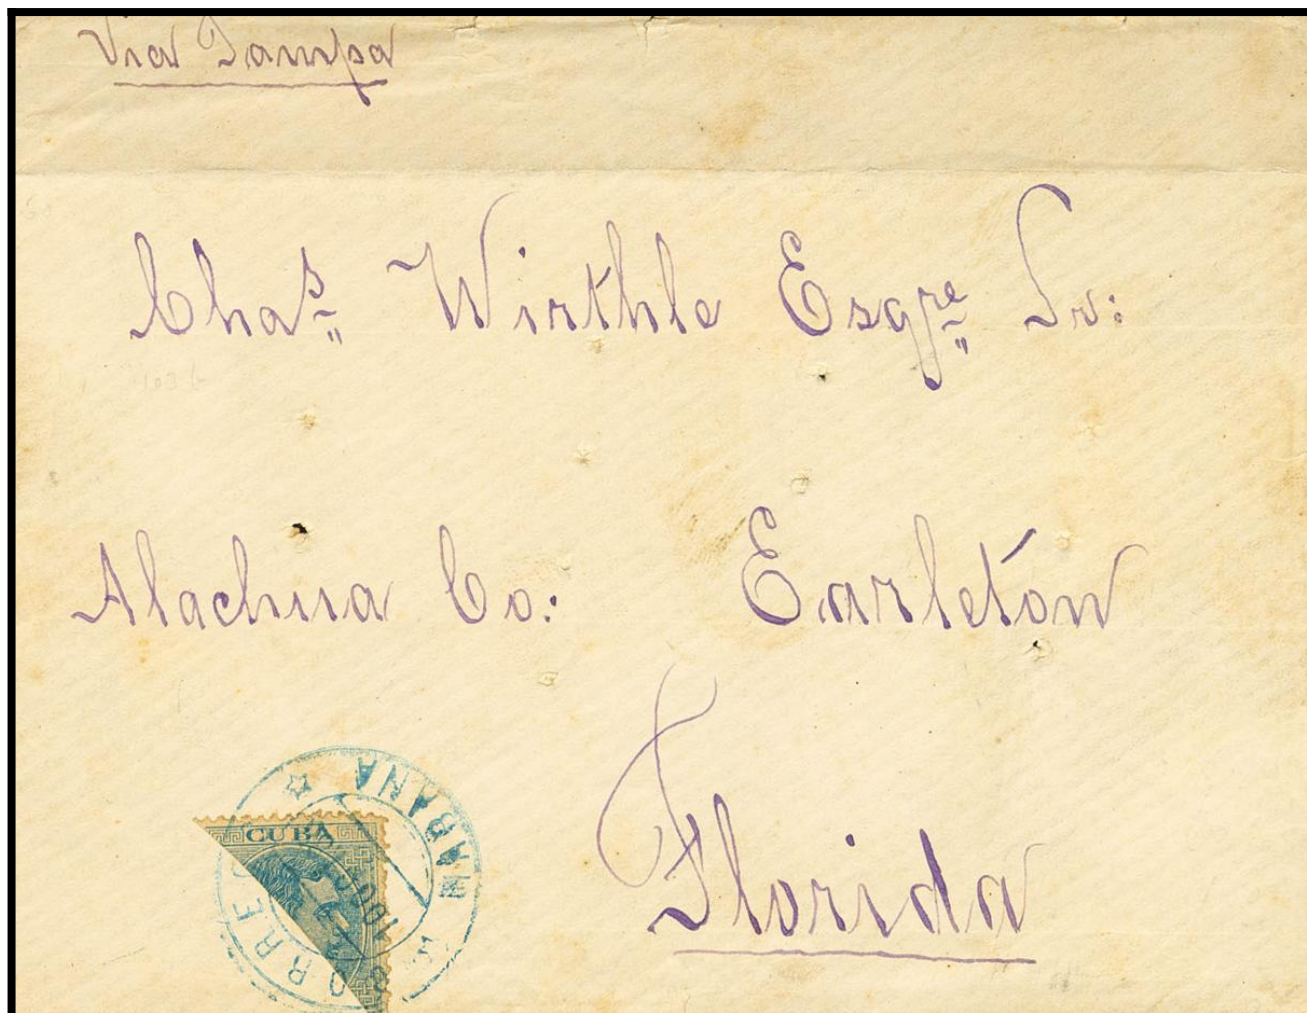 Via Tampa
Chas Wirthle Esqre Sr:
Alachua Co: Earleton
Florida
CUBA
CORREOS
HABANA